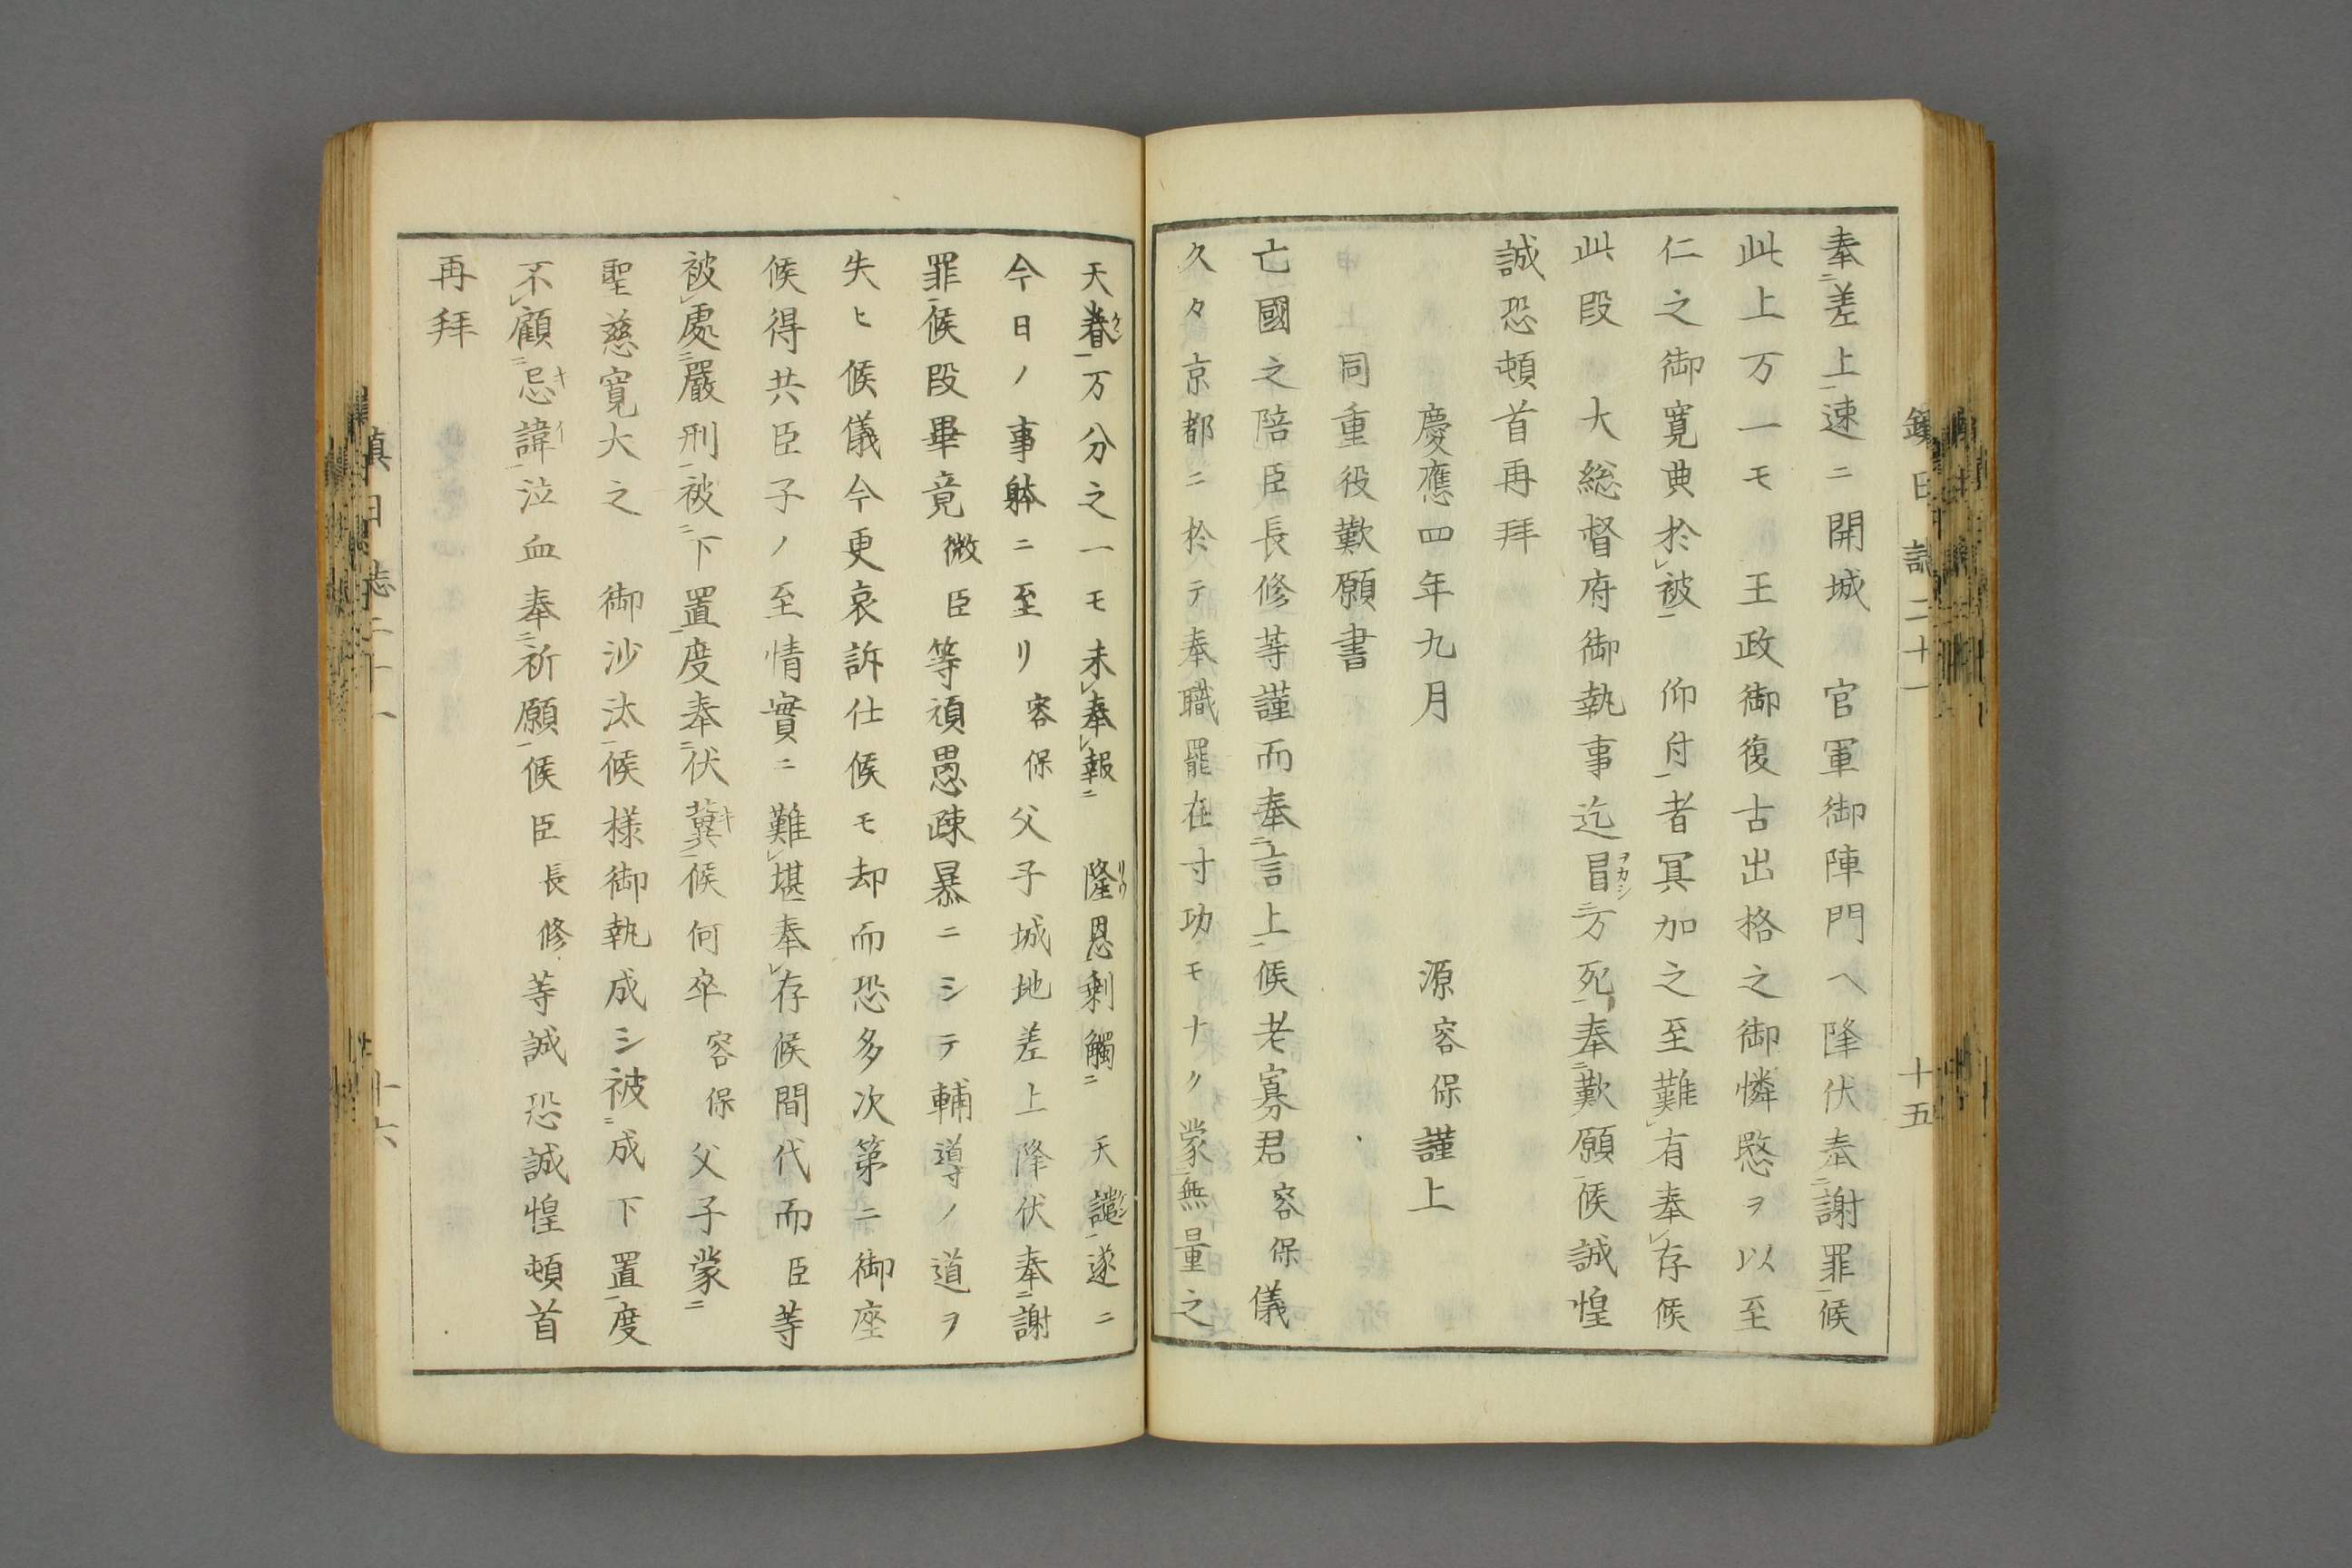 奉二差上一速ニ開城　官軍御陣門ヘ降伏奉二謝罪一候
此上万一モ　王政御復古出格之御憐愍ヲ以至
仁之御寛典於レ被二　仰付一者冥加之至難レ有奉レ存候
此段　大総督府御執事迄冒ヲカシ二万死一奉二歎願一候誠惶
誠恐頓首再拜
慶應四年九月　源容保謹上
同重役歎願書
亡國之陪臣長修等謹而奉二言上一候老寡君容保儀
久々京都ニ於テ奉職罷在寸功モナク蒙二無量之
天眷ケン一万分之一モ未レ奉レ報二　隆リウ恩剰觸二　天譴ケン一遂ニ
今日ノ事躰ニ至リ容保父子城地差上降伏奉二謝
罪一候段畢竟微臣等頑愚疎暴ニシテ輔導ノ道ヲ
失ヒ候儀今更哀訴仕候モ却而恐多次第ニ御座
候得共臣子ノ至情實ニ難レ堪奉レ存候間代而臣等
被レ處二嚴刑一被二下置一度奉二伏冀キ一候何卒容保父子蒙二
聖慈寛大之　御沙汰一候様御執成シ被二成下置一度
不レ顧二忌キ諱イ一泣血奉二祈願一候臣長修等誠恐誠惶頓首
再拜
鎮日誌二十一　十五
鎮日誌二十一　十六